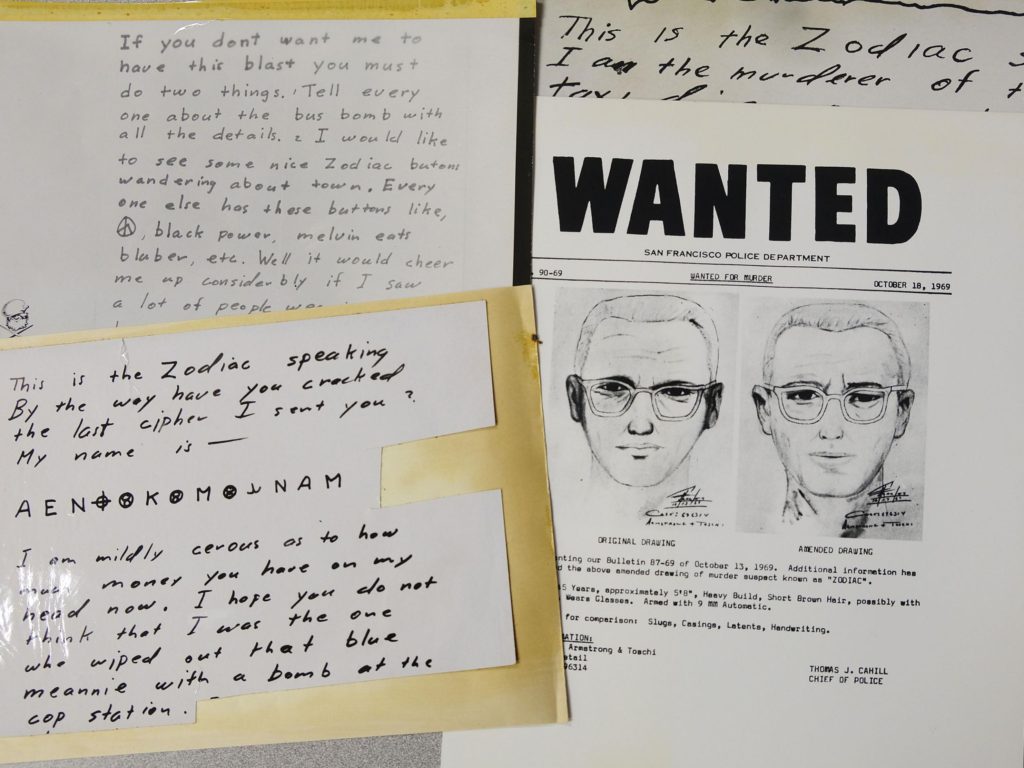 If you dont want me to
have this blast you must
do two things. 1 Tell every
one about the bus bomb with
all the details. 2 I would like
to see some nice Zodiac butons
wandering about town. Every
one else has these buttons like,
☮, black power, melvin eats
bluber, etc. Well it would cheer
me up considerbly if I saw
a lot of people
This is the Zodiac speaking
By the way have you cracked
the last cipher I sent you ?
My name is —
A E N ⌖ ⊗ K ⊗ M ⊗ ⅃ N A M
I am mildly cerous as to how
much money you have on my
head now. I hope you do not
think that I was the one
who wiped out that blue
meannie with a bomb at the
cop station.
This is the Zodiac
I am the murderer of
WANTED
SAN FRANCISCO POLICE DEPARTMENT
90-69 WANTED FOR MURDER OCTOBER 18, 1969
ORIGINAL DRAWING AMENDED DRAWING
nting our Bulletin 87-69 of October 13, 1969. Additional information has
d the above amended drawing of murder suspect known as "ZODIAC".
5 Years, approximately 5'8", Heavy Build, Short Brown Hair, possibly with
Wears Glasses. Armed with 9 MM Automatic.
for comparison: Slugs, Casings, Latents, Handwriting.
ATION:
Armstrong & Toschi
etail
96314
THOMAS J. CAHILL
CHIEF OF POLICE